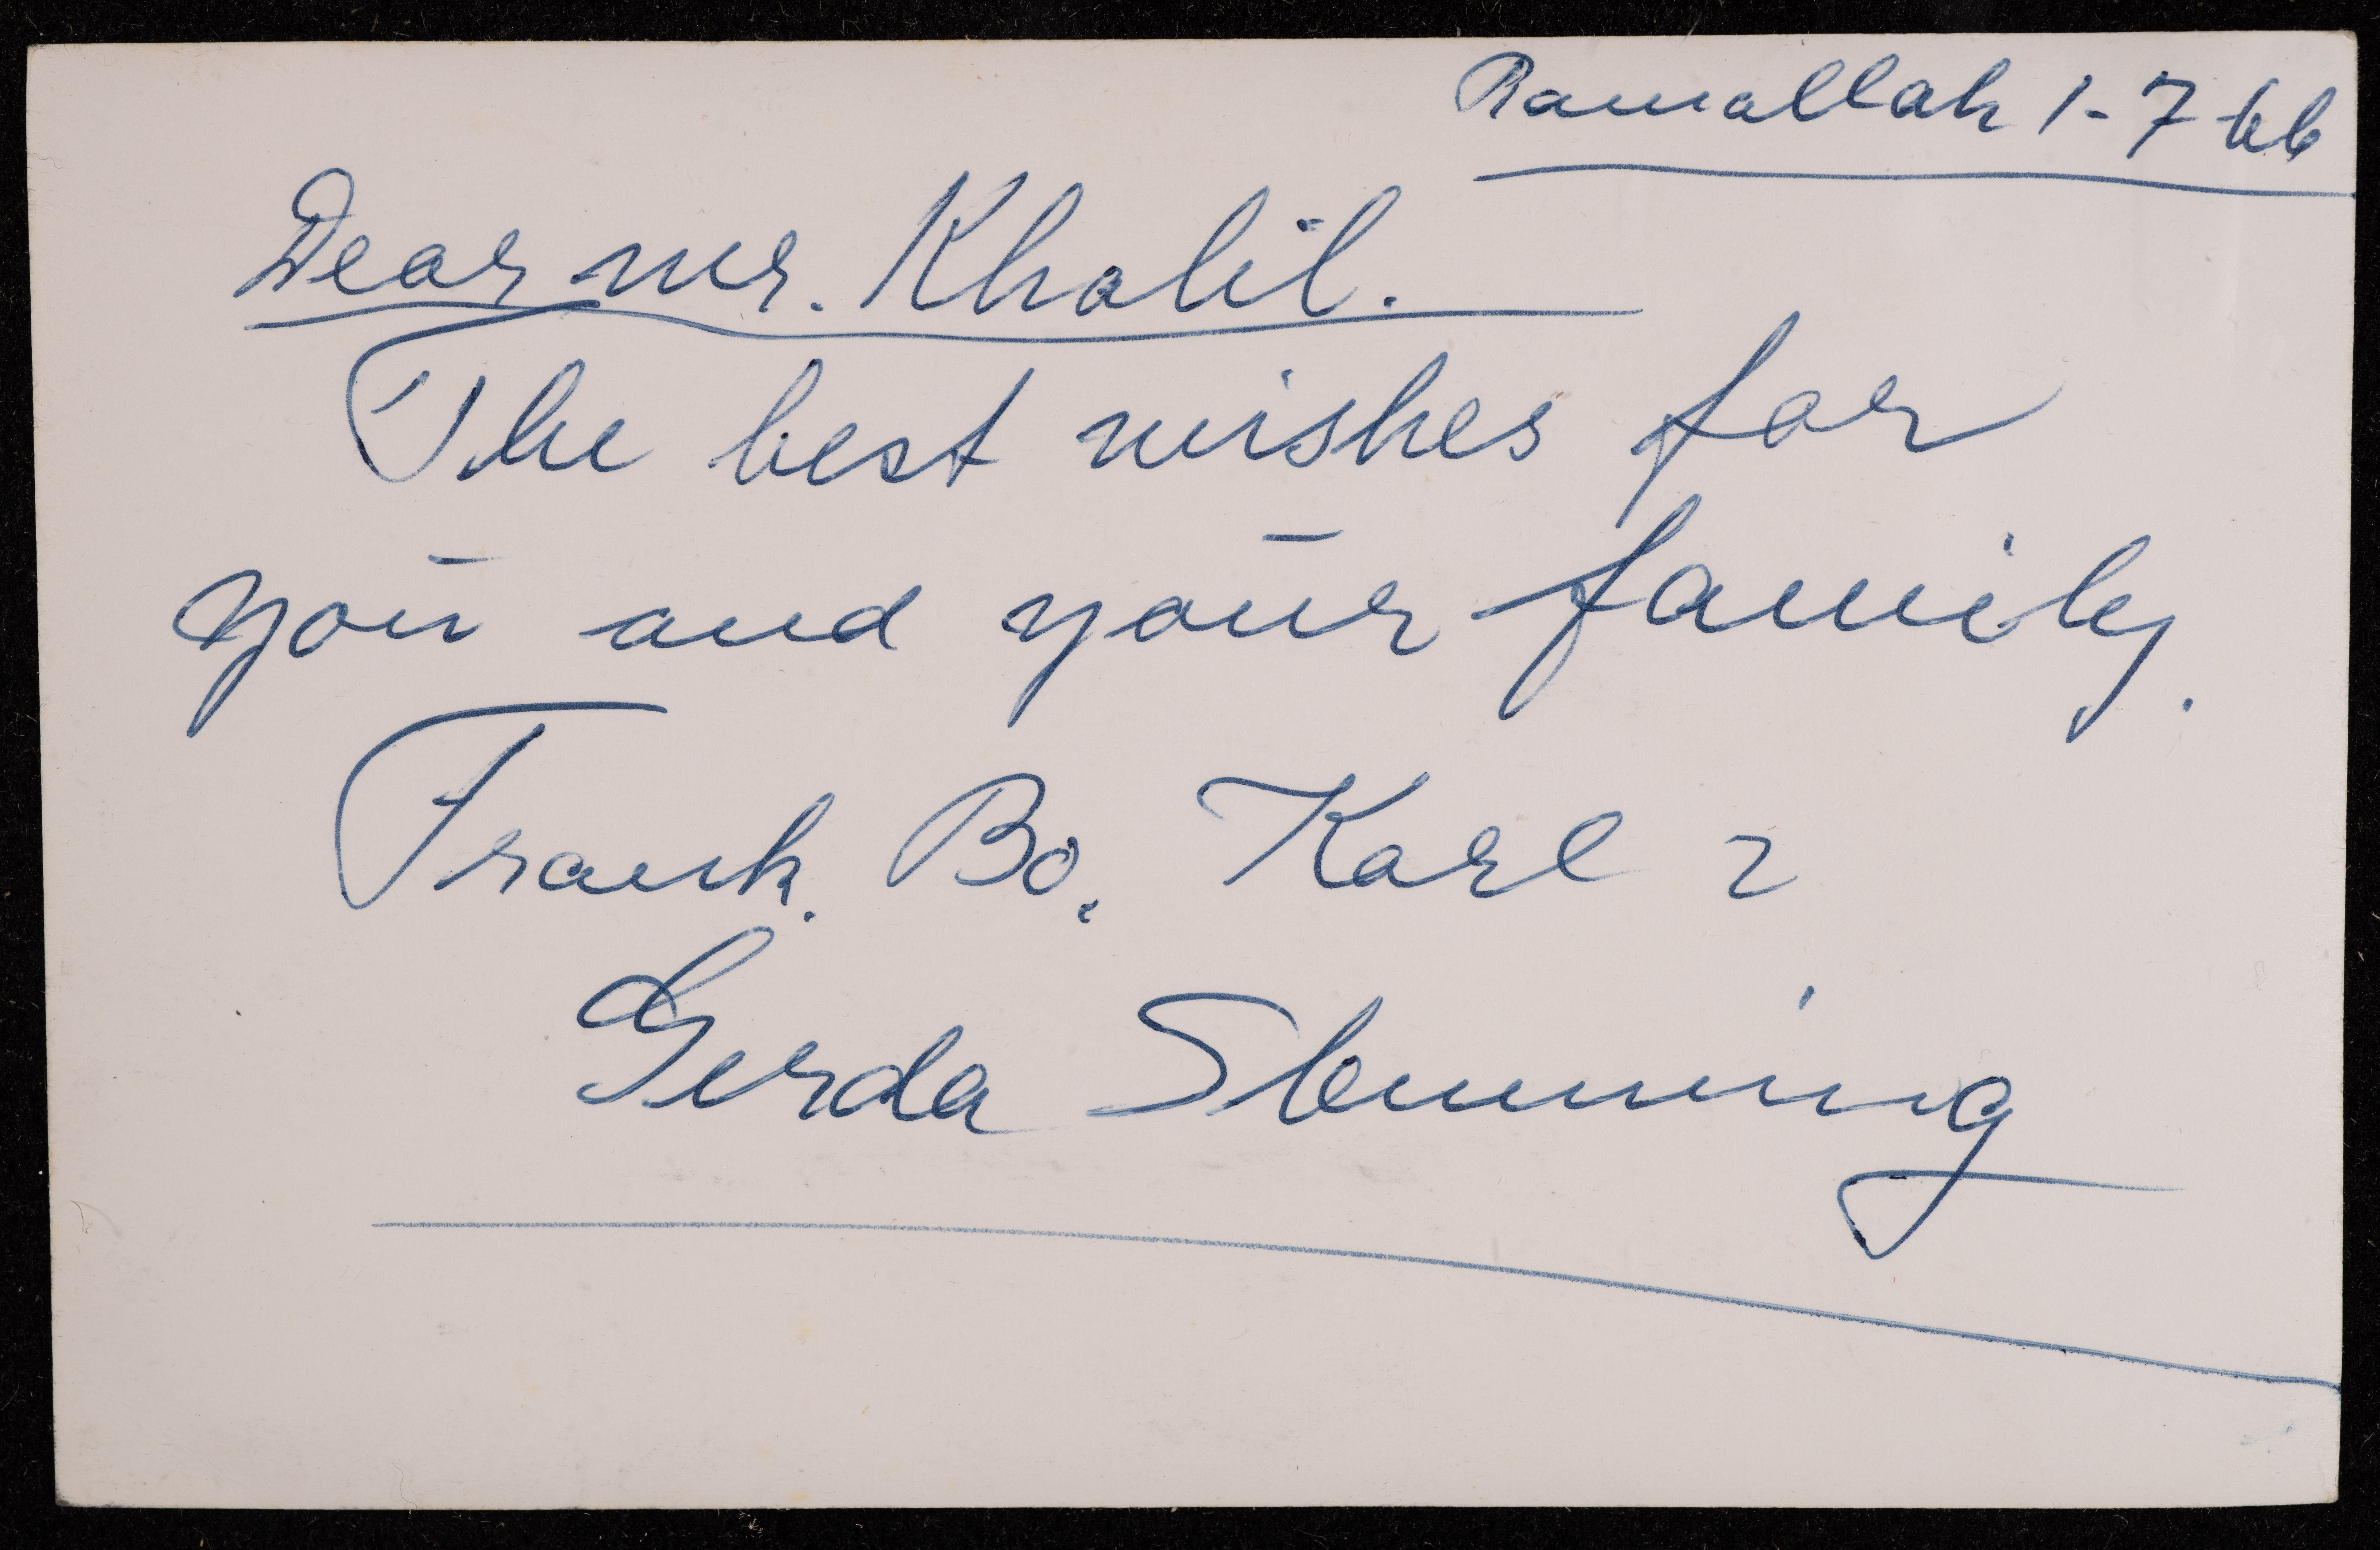 Ramallah 1-7-66
Dear mr. Khalil.
The best wishes for
you and your family.
Frank. Bo, Karl
Gerda